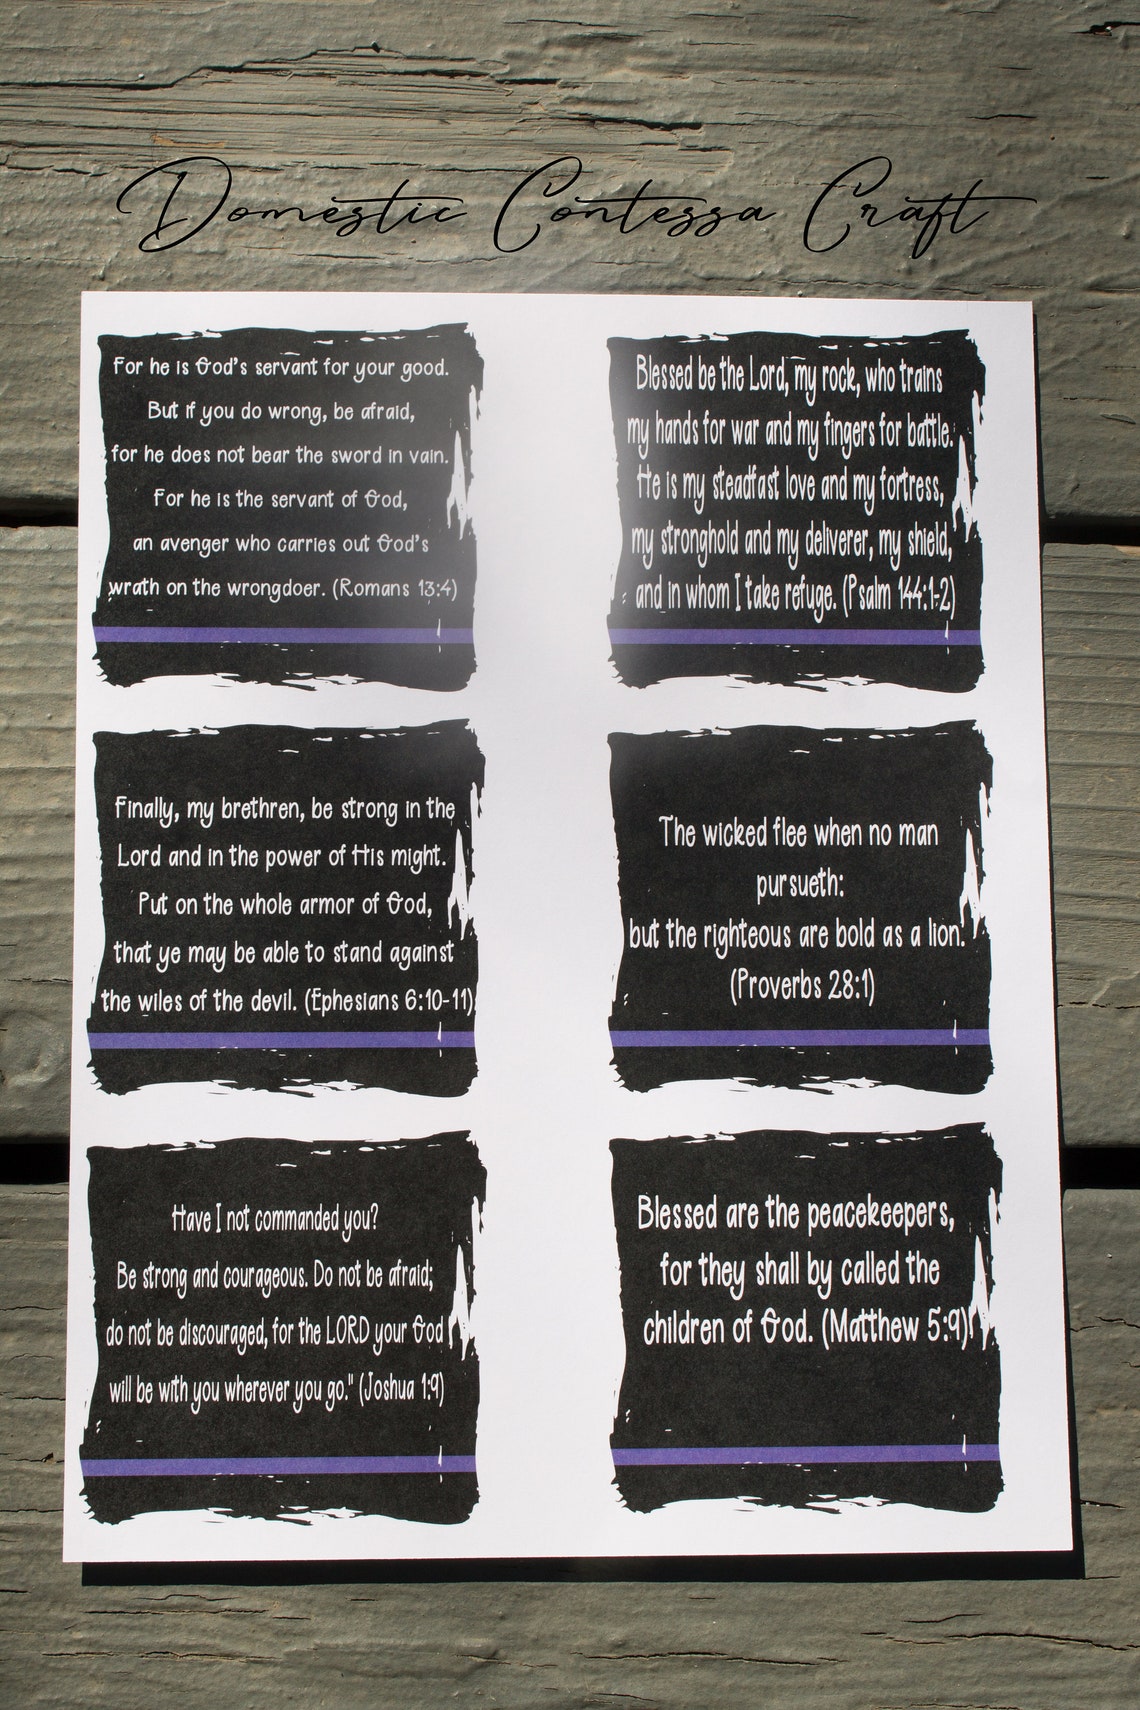 Domestic Contessa Craft
For he is God's servant for your good.
But if you do wrong, be afraid,
for he does not bear the sword in vain.
For he is the servant of God,
an avenger who carries out God's
wrath on the wrongdoer. (Romans 13:4)
Blessed be the Lord, my rock, who trains
my hands for war and my fingers for battle.
He is my steadfast love and my fortress,
my stronghold and my deliverer, my shield,
and in whom I take refuge. (Psalm 144:1-2)
Finally, my brethren, be strong in the
Lord and in the power of His might.
Put on the whole armor of God,
that ye may be able to stand against
the wiles of the devil. (Ephesians 6:10-11)
The wicked flee when no man
pursueth:
but the righteous are bold as a lion.
(Proverbs 28:1)
Have I not commanded you?
Be strong and courageous. Do not be afraid;
do not be discouraged, for the LORD your God
will be with you wherever you go." (Joshua 1:9)
Blessed are the peacekeepers,
for they shall by called the
children of God. (Matthew 5:9)